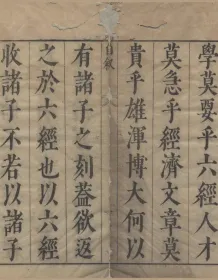 學莫要乎六經人才
莫急乎經濟文章莫
貴乎雄渾博大何以
有諸子之刻蓋欲返
之於六經也以六經
收諸子不若以諸子